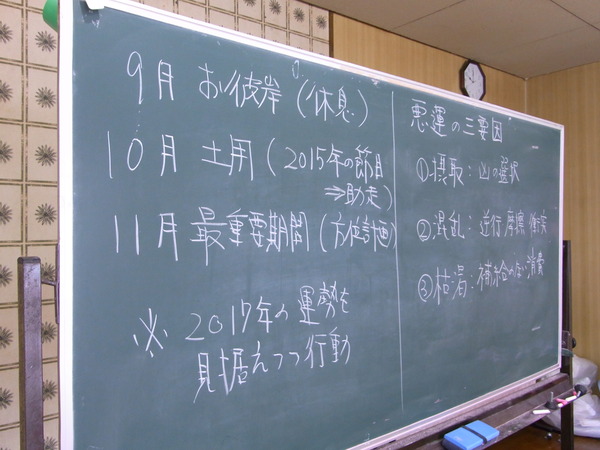 9月 お彼岸（休息）
10月 土用（2015年の節目
⇒助走）
11月 最重要期間（方位計画）
※ 2017年の運勢を
見据えつつ行動
悪運の三要因
①摂取：凶の選択
②混乱：逆行 摩擦 衝突
③枯渇：補給のない消費